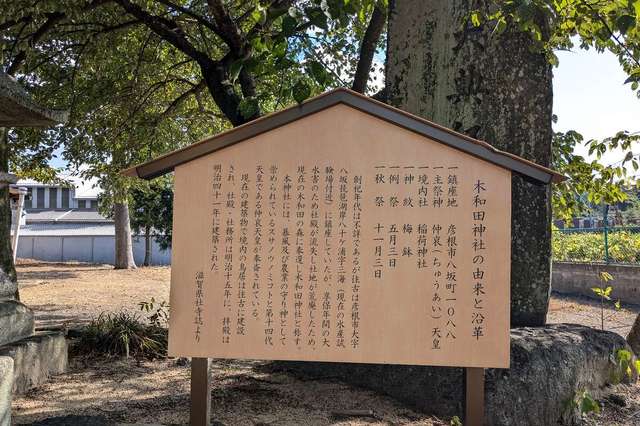 木和田神社の由来と沿革
一鎮座地 彦根市八坂町一〇八八
一主祭神 仲哀(ちゅうあい)天皇
一境内社 稲荷神社
一神紋 梅鉢
一例祭 五月三日
一秋祭 十一月三日
創祀年代は不詳であるが往古は彦根市大字
八坂琵琶湖岸八十ケ浦字三海(現在の水産試
験場付近)に鎮座していたが、享保年間の大
水害のため社殿が流失し社地が荒廃したため、
現在の木和田の森に奉還し木和田神社と称す。
本神社には、暴風及び農業の守り神として
崇められているスサノウノミコトと第十四代
天皇である仲哀天皇が奉斎されている。
現在の建築物で境内の鳥居は往古に建設
され、社殿・社務所は明治十五年に、拝殿は
明治四十一年に建築された。
滋賀県社寺誌より